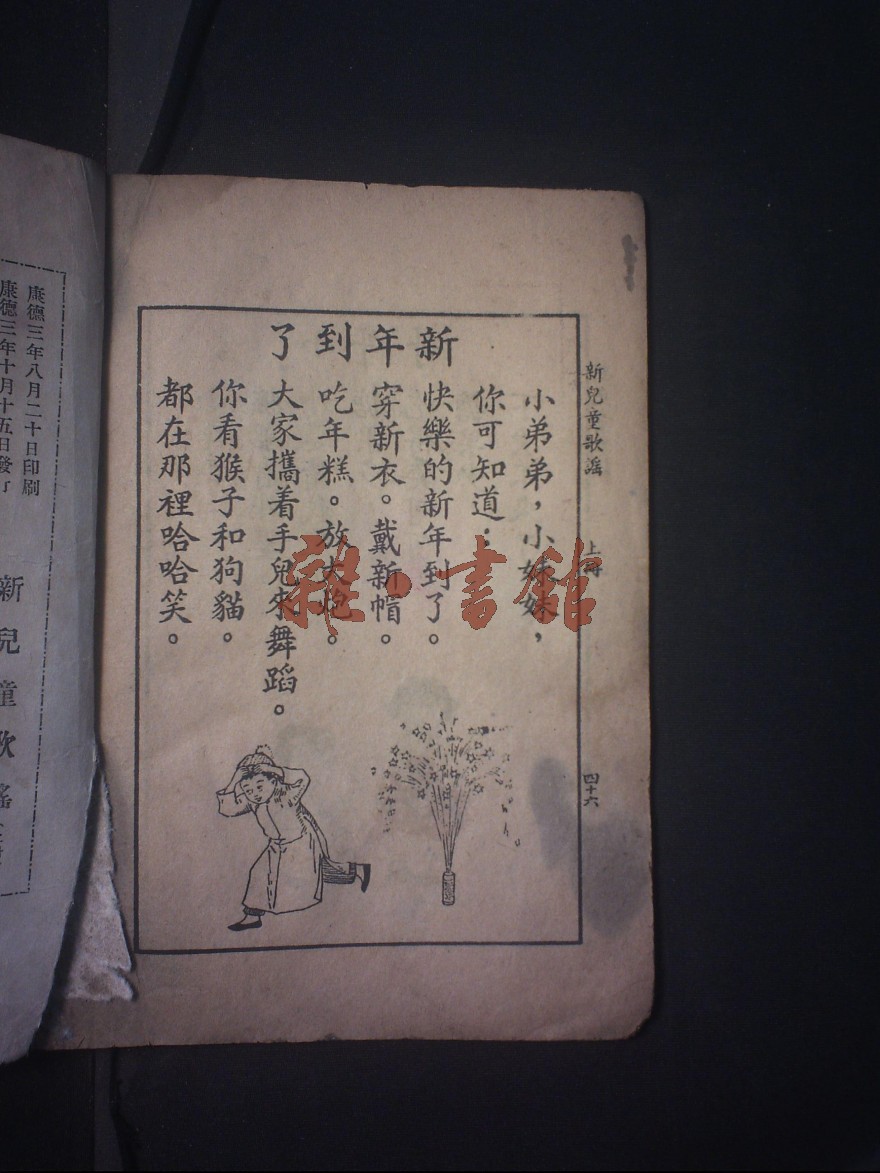 新兒童歌謠 上
四十六
新年到了
小弟弟，小妹妹，
你可知道：
快樂的新年到了。
穿新衣。戴新帽。
吃年糕。放大炮。
大家攜着手兒來舞蹈。
你看猴子和狗貓。
都在那裡哈哈笑。
雜·書館
康德三年八月二十日印刷
康德三年十月十五日發
新兒童歌謠